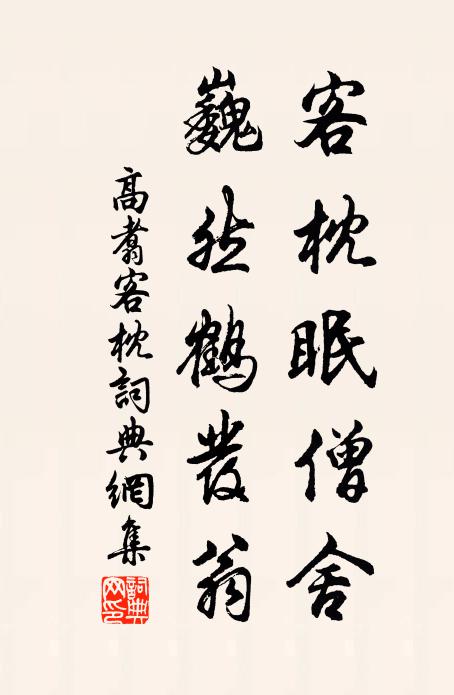 客枕眠僧舍
巍然鶴發翁
高翥客枕詞典網集